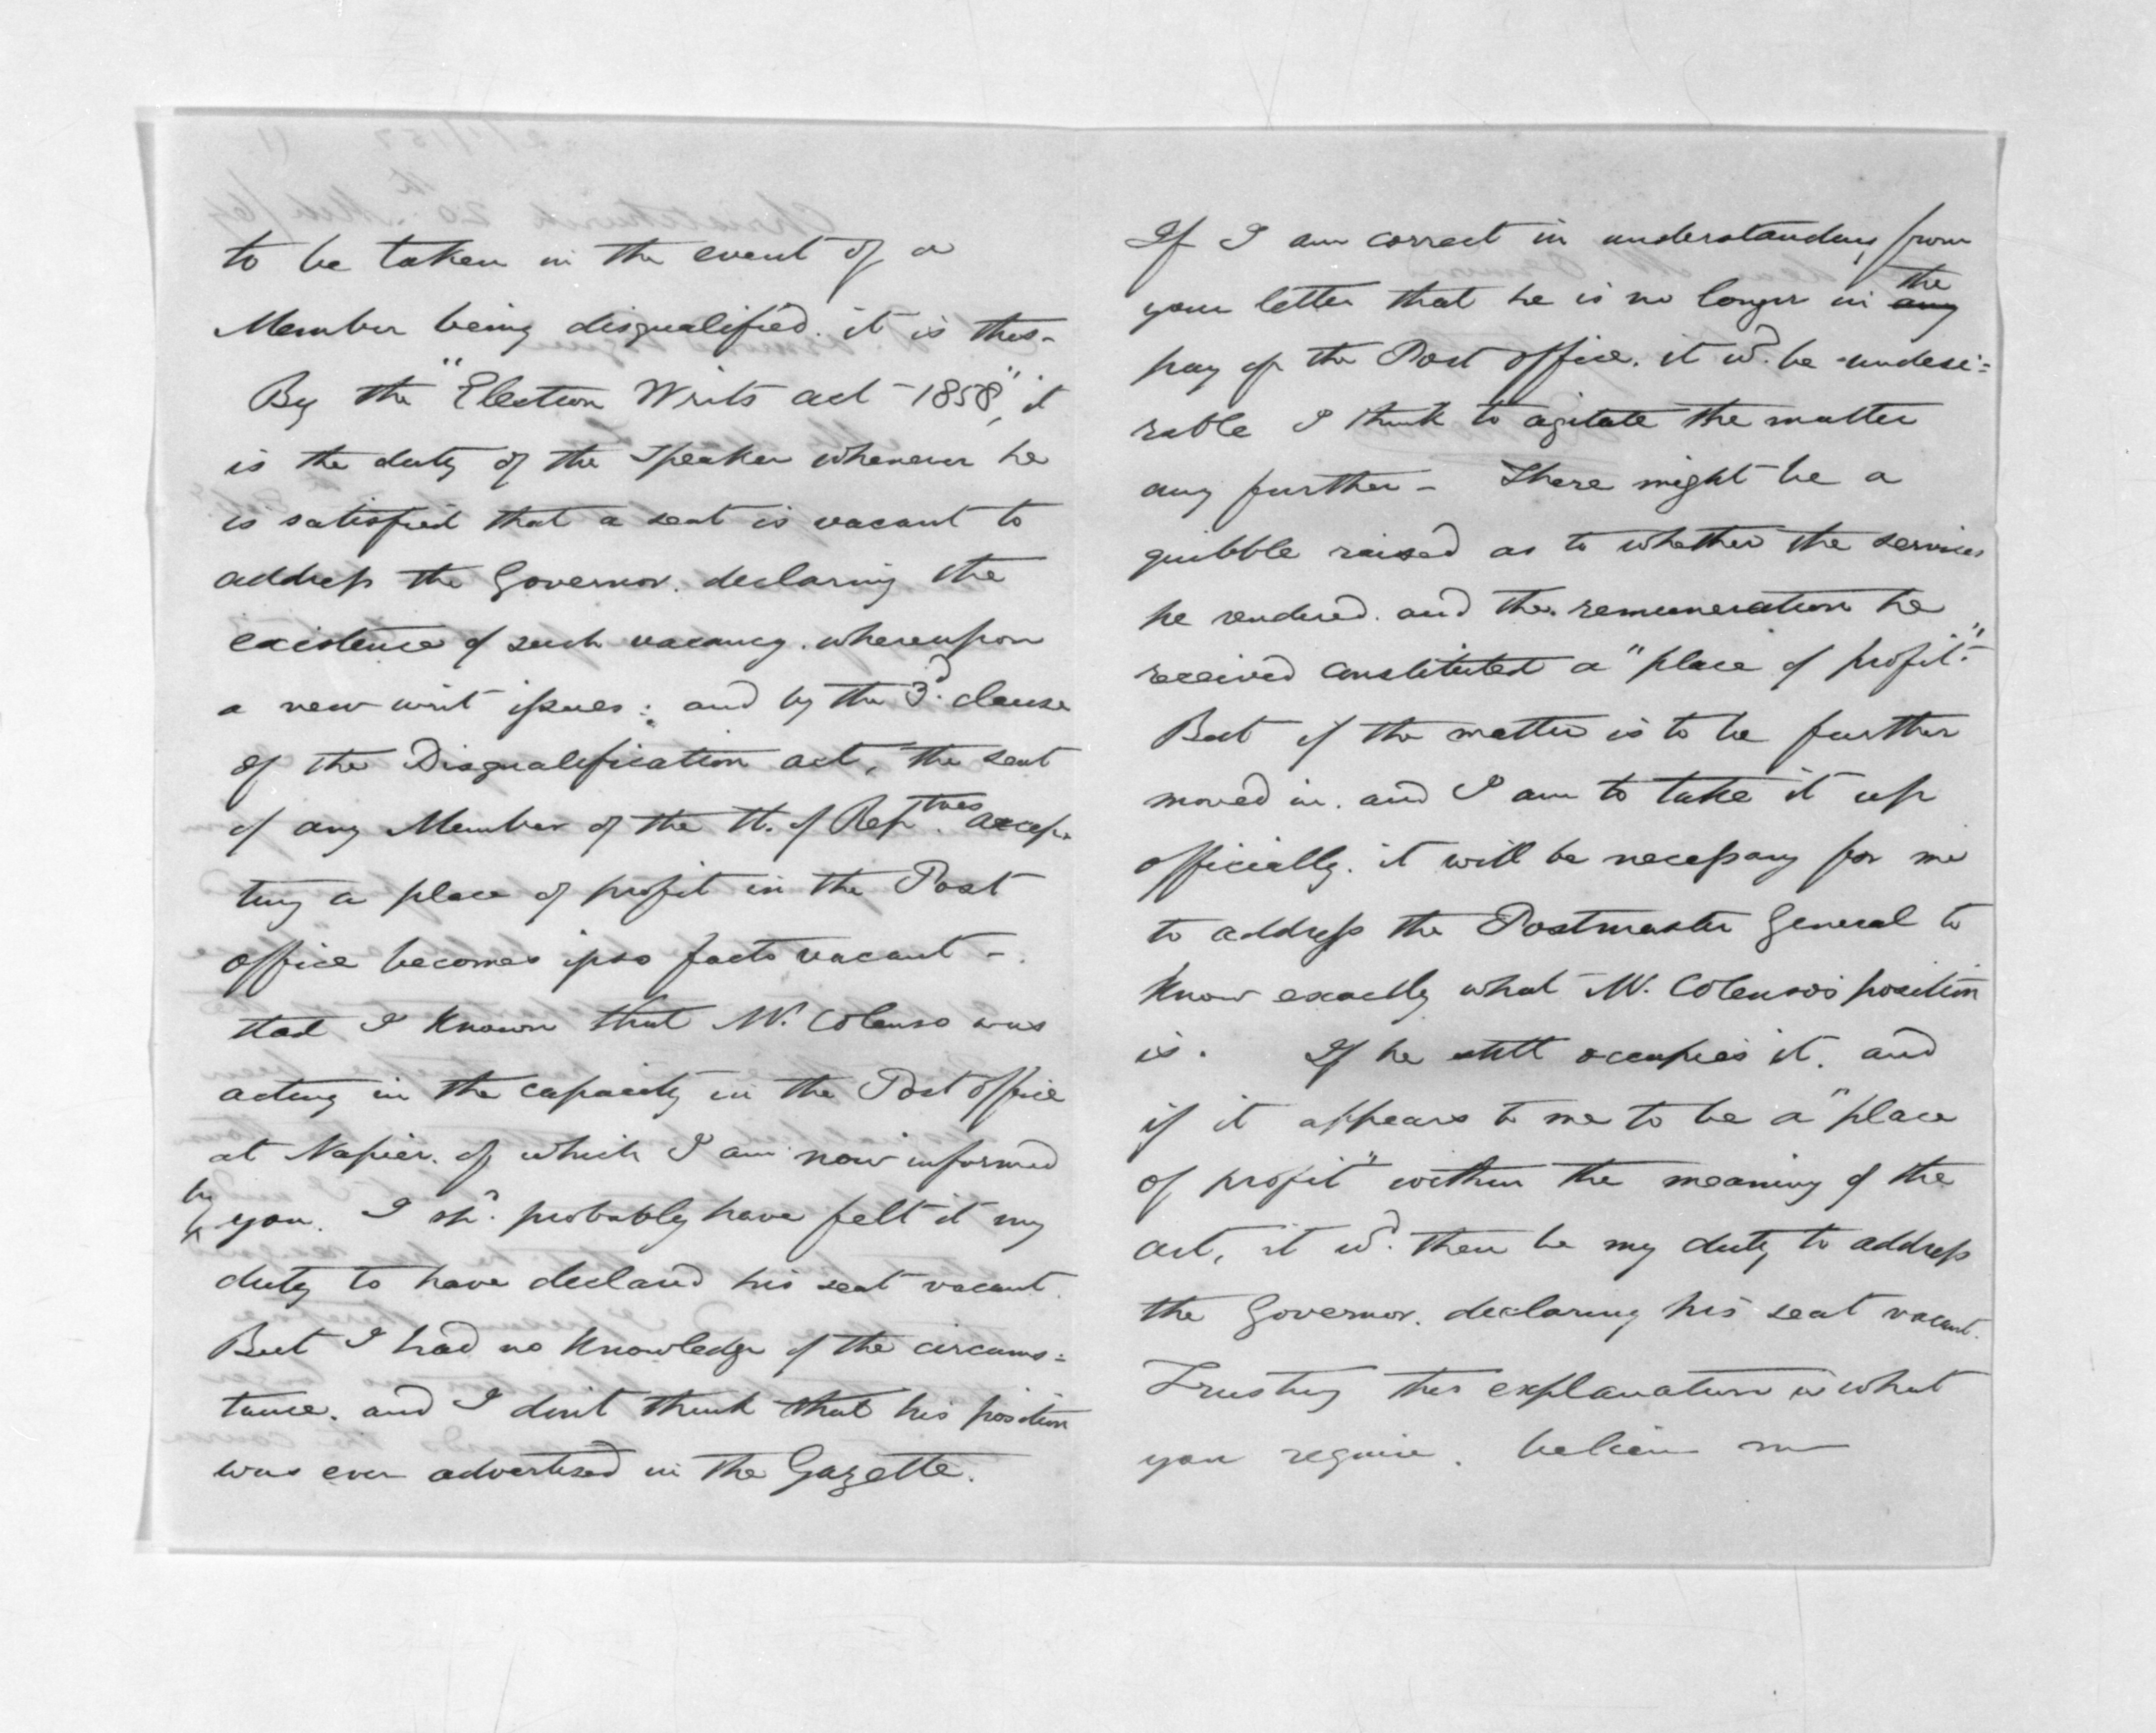 to be taken in the event of a
Member being disqualified. it is this-
By the "Election Writs act - 1858", it
is the duty of the Speaker whenever he
is satisfied that a seat is vacant to
address the Governor. declaring the
existence of such vacancy. whereupon
a new writ issues: and by the 3d. clause
of the Disqualification act, the seat
of any Member of the H. of Reptves. accep-
ting a place of profit in the Post
office becomes ipso facto vacant -
Had I known that Mr. Colenso was
acting in the capacity in the Post office
at Napier. of which I am now informed
by you. I shd. probably have felt it my
duty to have declared his seat vacant.
But I had no knowledge of the circums=
tance. and I don't think that his position
was ever advertised in the Gazette.
If I am correct in understanding from
your letter that he is no longer in any the
pay of the Post office. it wd. be undesi=
rable I think to agitate the matter
any further - There might be a
quibble raised as to whether the services
he rendered. and the remuneration he
received constituted a "place of profit."
But if the matter is to be further
moved in. and I am to take it up
officially. it will be necessary for me
to address the Postmaster General to
know exactly what Mr. Colenso's position
is. If he still occupies it. and
if it appears to me to be a "place
of profit" within the meaning of the
act, it wd. then be my duty to address
the Governor. declaring his seat vacant.
Trusting this explanation is what
you require. believe me